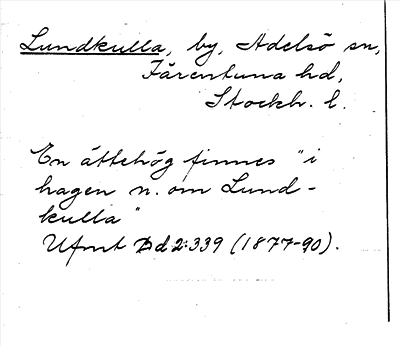 Lundkulla, by, Adelsö sn,
Färentuna hd,
Stockh. l.
En ättehög finnes "i
hagen n. om Lund-
kulla"
Ufmt Bd 2:339 (1877-90).